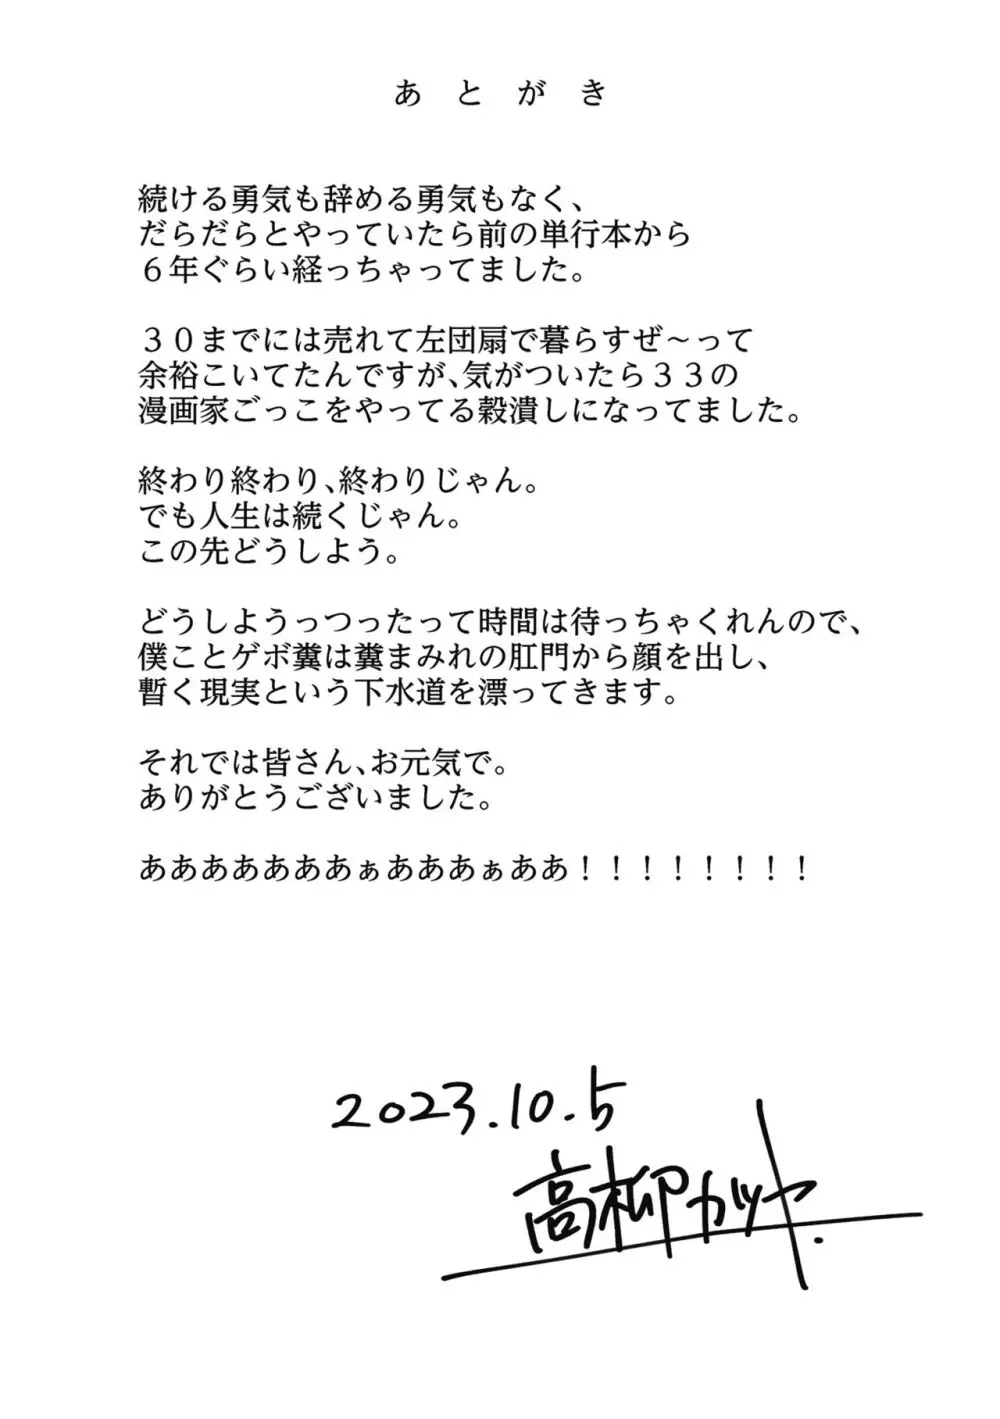 あとがき
続ける勇気も辞める勇気もなく、
だらだらとやっていたら前の単行本から
６年ぐらい経っちゃってました。
３０までには売れて左団扇で暮らすぜ～って
余裕こいてたんですが、気がついたら３３の
漫画家ごっこをやってる穀潰しになってました。
終わり終わり、終わりじゃん。
でも人生は続くじゃん。
この先どうしよう。
どうしようっつったって時間は待っちゃくれんので、
僕ことゲボ糞は糞まみれの肛門から顔を出し、
暫く現実という下水道を漂ってきます。
それでは皆さん、お元気で。
ありがとうございました。
あああああああぁあああぁああ！！！！！！！！
2023.10.5
高柳カツヤ.